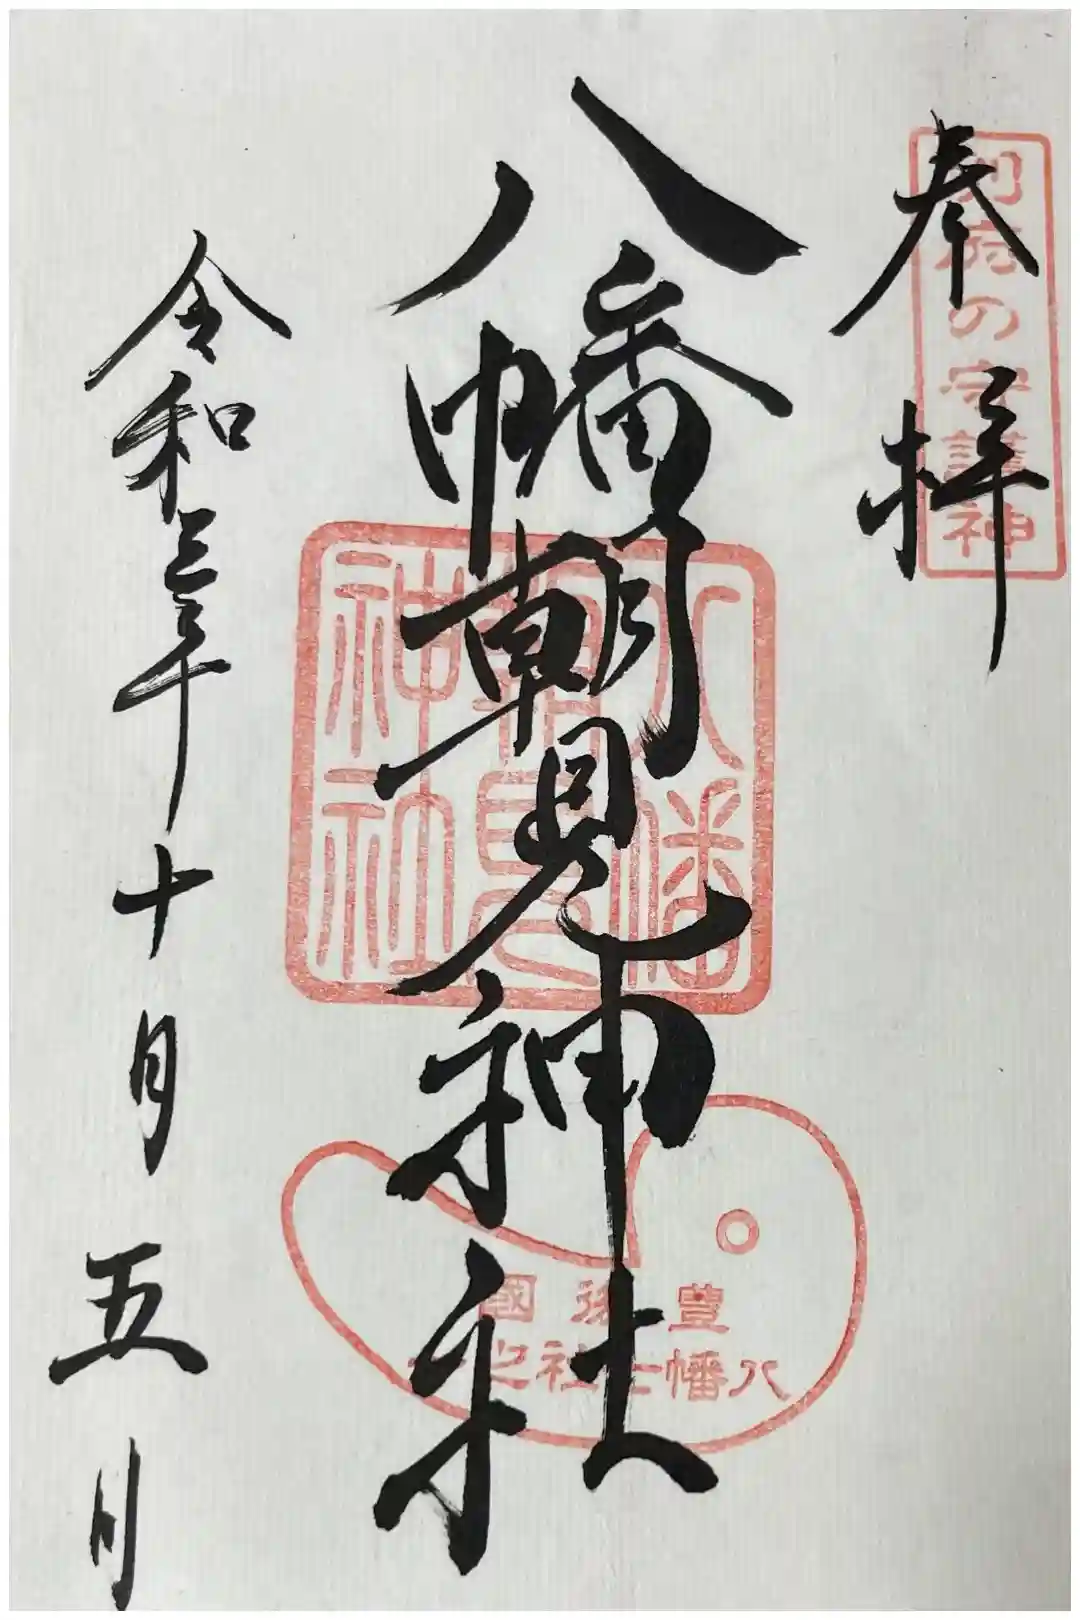 別府の守護神
奉拝
八幡朝見神社
八幡
朝見
神社
豊後國
八幡七社之一
令和三年十月五日